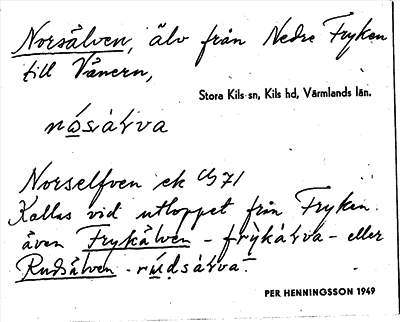 Norsälven, älv från Nedre Fryken
till Vänern,
Stora Kils sn, Kils hd, Värmlands län.
nó̲sàrva
Norselfven ek 71
Kallas vid utloppet från Fryken
även Frykälven - frỳkárva - eller
Rudsälven - rú̲dsàrva.
PER HENNINGSSON 1949